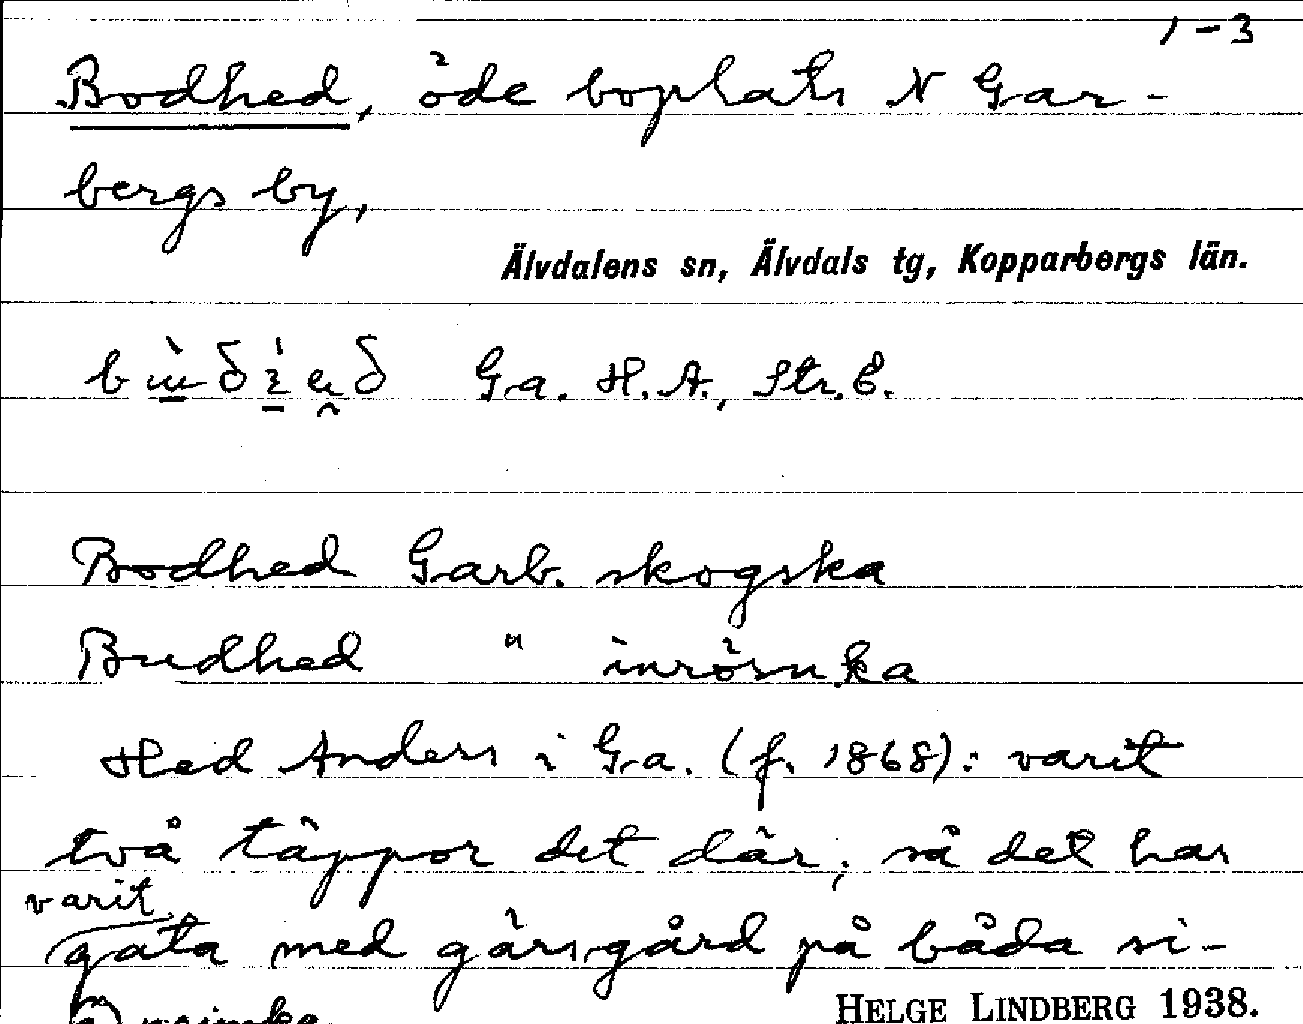 1-3
Bodhed, öde boplats N Gar-
bergs by,
Älvdalens sn, Älvdals tg, Kopparbergs län.
Ga. H.A., Str. E.
Bodhed Garb. skogska
Budhed " inrösnka
Hed Anders i Ga. (f. 1868): varit
två täppor det där; så det har
varit
gata med gärsgård på båda si-
HELGE LINDBERG 1938.